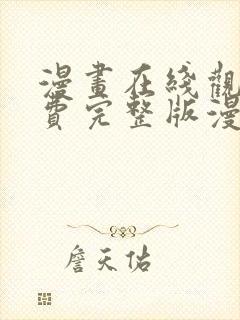 漫畫在綫觀
費完整版漫
詹天佑